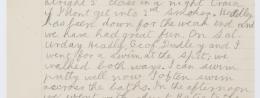 alright I close on a night train
if I dont get into 2nd smoker. Headley
has been down for the week end and
we have had great fun. On Sat-
urday Headly, Geof Dudley and I
went for a swim at the Spit; we
walked both ways. I can swim
pretty well now I often swim
accross the baths. In the afternoon